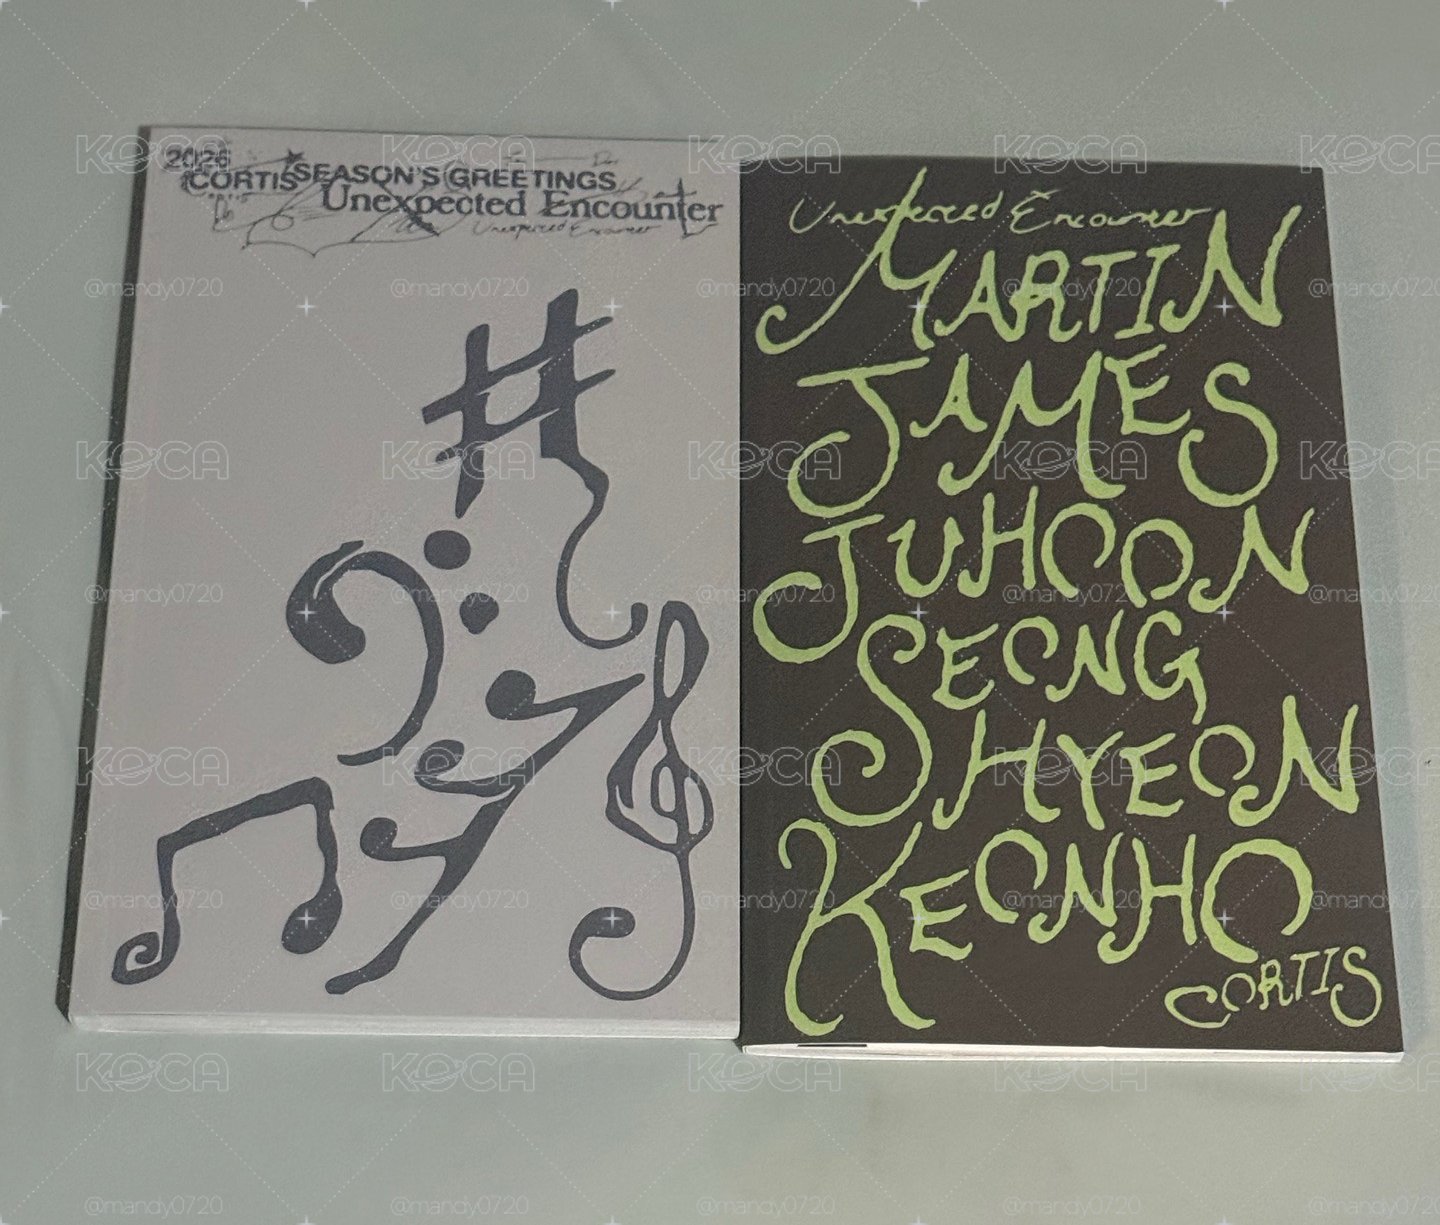 2026
CORTIS SEASON'S GREETINGS
Unexpected Encounter
Unexpected Encounter
Unexpected Encounter
MARTIN
JAMES
JUHOON
SEONG
HYEON
KEONHO
CORTIS
KOCA
@mandy0720